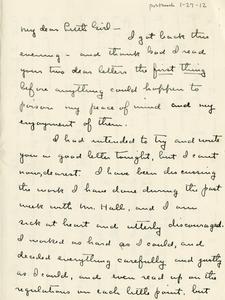 postmark 1-29-12
My dear Little Girl—
I got back this
evening - and thank God I read
your two dear letters the first thing
before anything could happen to
poison my peace of mind and my
enjoyment of them.
I had intended to try and write
you a good letter tonight, but I can't
now, dearest. I have been discussing
the work I have done during the past
week with Mr. Hall, and I am
sick at heart and utterly discouraged.
I worked as hard as I could, and
decided everything carefully and justly
as I could, and even read up on the
regulations on each little point, but